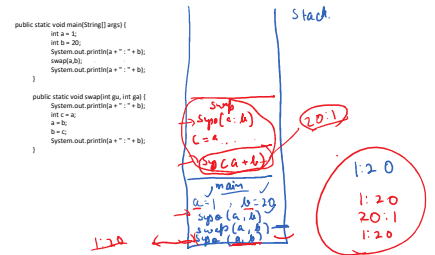 Stack.
public static void main(String[] args) {
int a = 1;
int b = 20;
System.out.println(a + " : " + b);
swap(a,b);
System.out.println(a + " : " + b);
}
public static void swap(int gu, int ga) {
System.out.println(a + " : " + b);
int c = a;
a = b;
b = c;
System.out.println(a + " : " + b);
}
swap
syso(a:b)
c = a . . . .
sy(a+b)
20:1
main
a=1, b=20
syso (a, b)
swap (a, b)
syso (a, b)
1:20
1:20
1:20
20:1
1:20